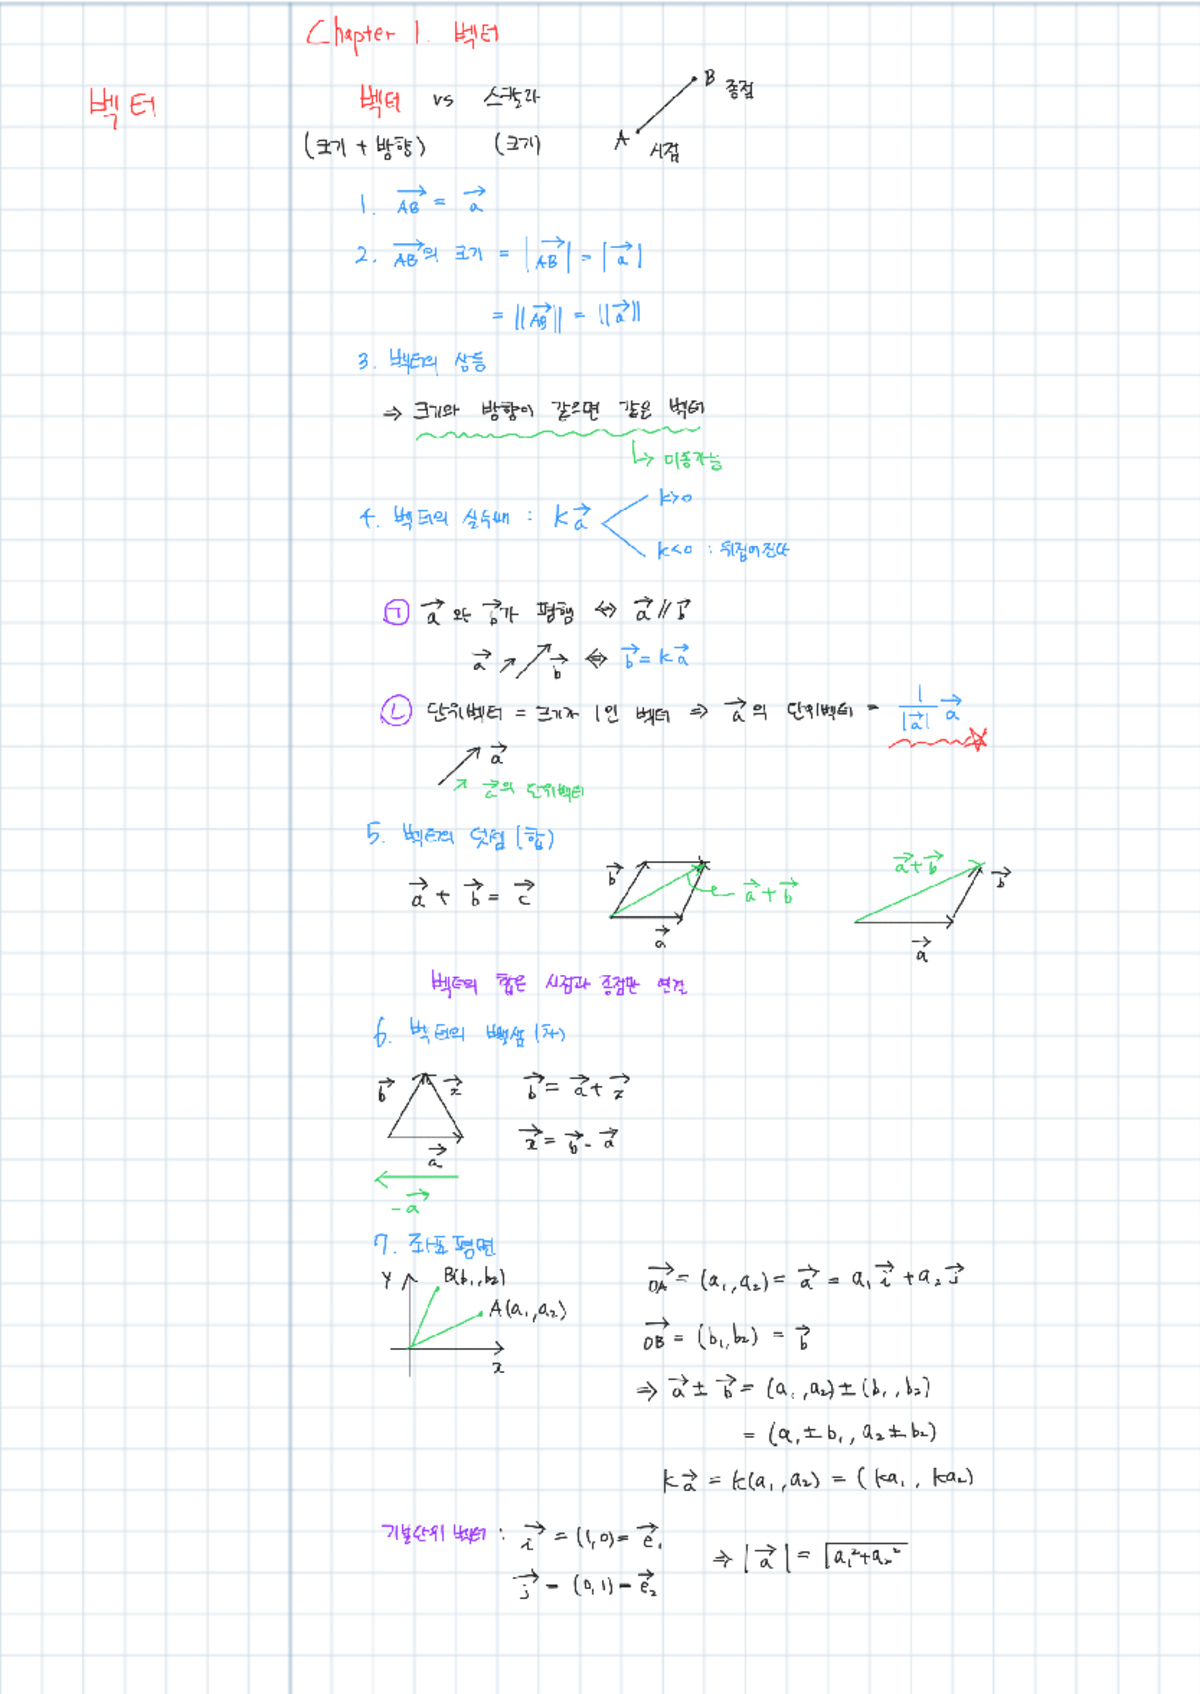 Chapter 1. 벡터
벡터
벡터 vs 스칼라
(크기 + 방향) (크기)
B 종점
A 시점
1. $\overrightarrow{AB} = \vec{a}$
2. $\overrightarrow{AB}$의 크기 = $|\overrightarrow{AB}| = |\vec{a}|$
$= ||\overrightarrow{AB}|| = ||\vec{a}||$
3. 벡터의 상등
⇒ 크기와 방향이 같으면 같은 벡터
↳ 이동가능
4. 벡터의 실수배 : $k\vec{a}$
k>0
k<0 : 뒤집어진다
㉠ $\vec{a}$ 와 $\vec{b}$가 평행 ⇔ $\vec{a} // \vec{b}$
$\vec{a}$ $\vec{b}$ ⇔ $\vec{b} = k\vec{a}$
㉡ 단위벡터 = 크기가 1인 벡터 ⇒ $\vec{a}$의 단위벡터 = $\frac{1}{|\vec{a}|}\vec{a}$
$\vec{a}$
$\vec{a}$의 단위벡터
5. 벡터의 덧셈(합)
$\vec{a} + \vec{b} = \vec{c}$
$\vec{b}$ $\vec{a}+\vec{b}$ $\vec{a}$
$\vec{a}+\vec{b}$ $\vec{b}$ $\vec{a}$
벡터의 합은 시점과 종점만 연결
6. 벡터의 뺄셈(차)
$\vec{b}$ $\vec{x}$ $\vec{a}$
$-\vec{a}$
$\vec{b} = \vec{a} + \vec{x}$
$\vec{x} = \vec{b} - \vec{a}$
7. 좌표평면
y B(b₁, b₂)
A(a₁, a₂)
x
$\overrightarrow{OA} = (a_1, a_2) = \vec{a} = a_1\vec{i} + a_2\vec{j}$
$\overrightarrow{OB} = (b_1, b_2) = \vec{b}$
⇒ $\vec{a} \pm \vec{b} = (a_1, a_2) \pm (b_1, b_2)$
$= (a_1 \pm b_1, a_2 \pm b_2)$
$k\vec{a} = k(a_1, a_2) = (ka_1, ka_2)$
기본단위 벡터 : $\vec{i} = (1, 0) = \vec{e}_1$
$\vec{j} = (0, 1) = \vec{e}_2$
⇒ $|\vec{a}| = \sqrt{a_1^2 + a_2^2}$